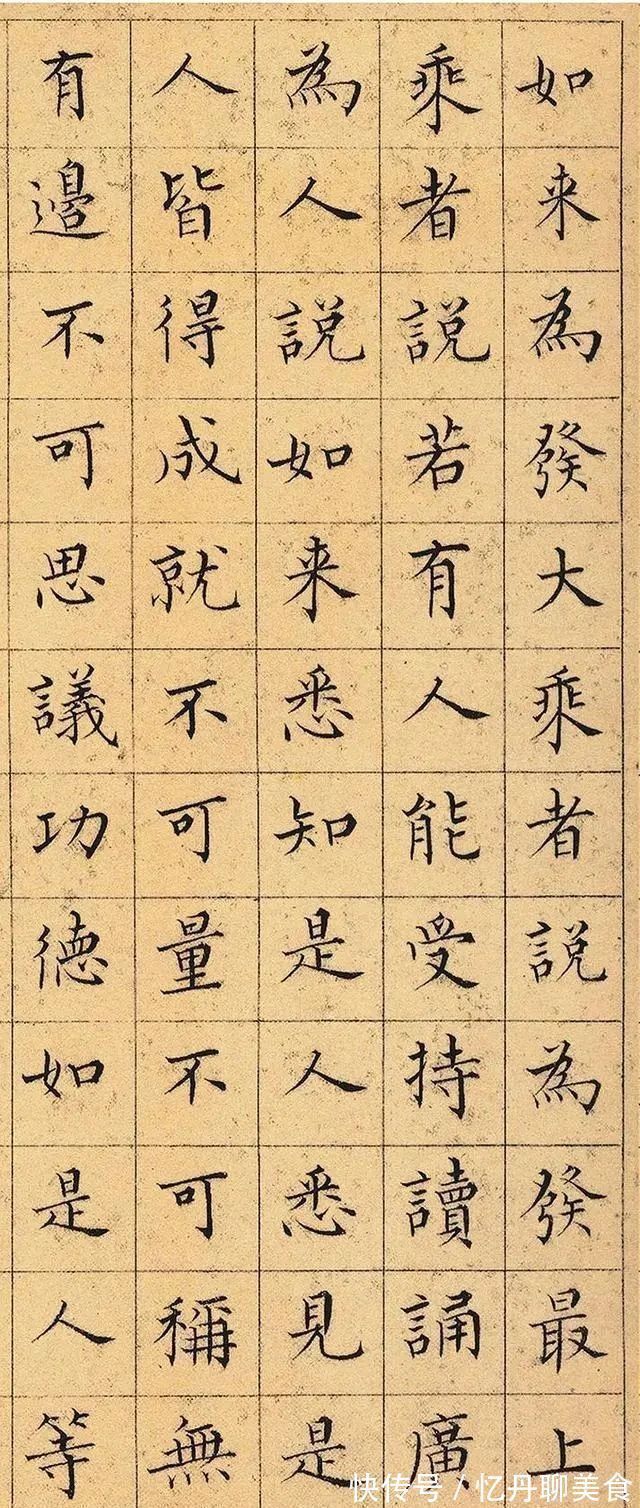 如来為發大乘者說為發最上
乘者說若有人能受持讀誦廣
為人說如来悉知是人悉見是
人皆得成就不可量不可稱無
有邊不可思議功德如是人等
快传号/忆丹聊美食